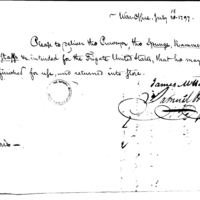 War Office, July 18th 1797.
Please to deliver the Purveyor, the Sponge, Rammer
Staffs &c. intended for the Frigate United States, that he may
finished for use, and returned into store.
James McHe
Samuel